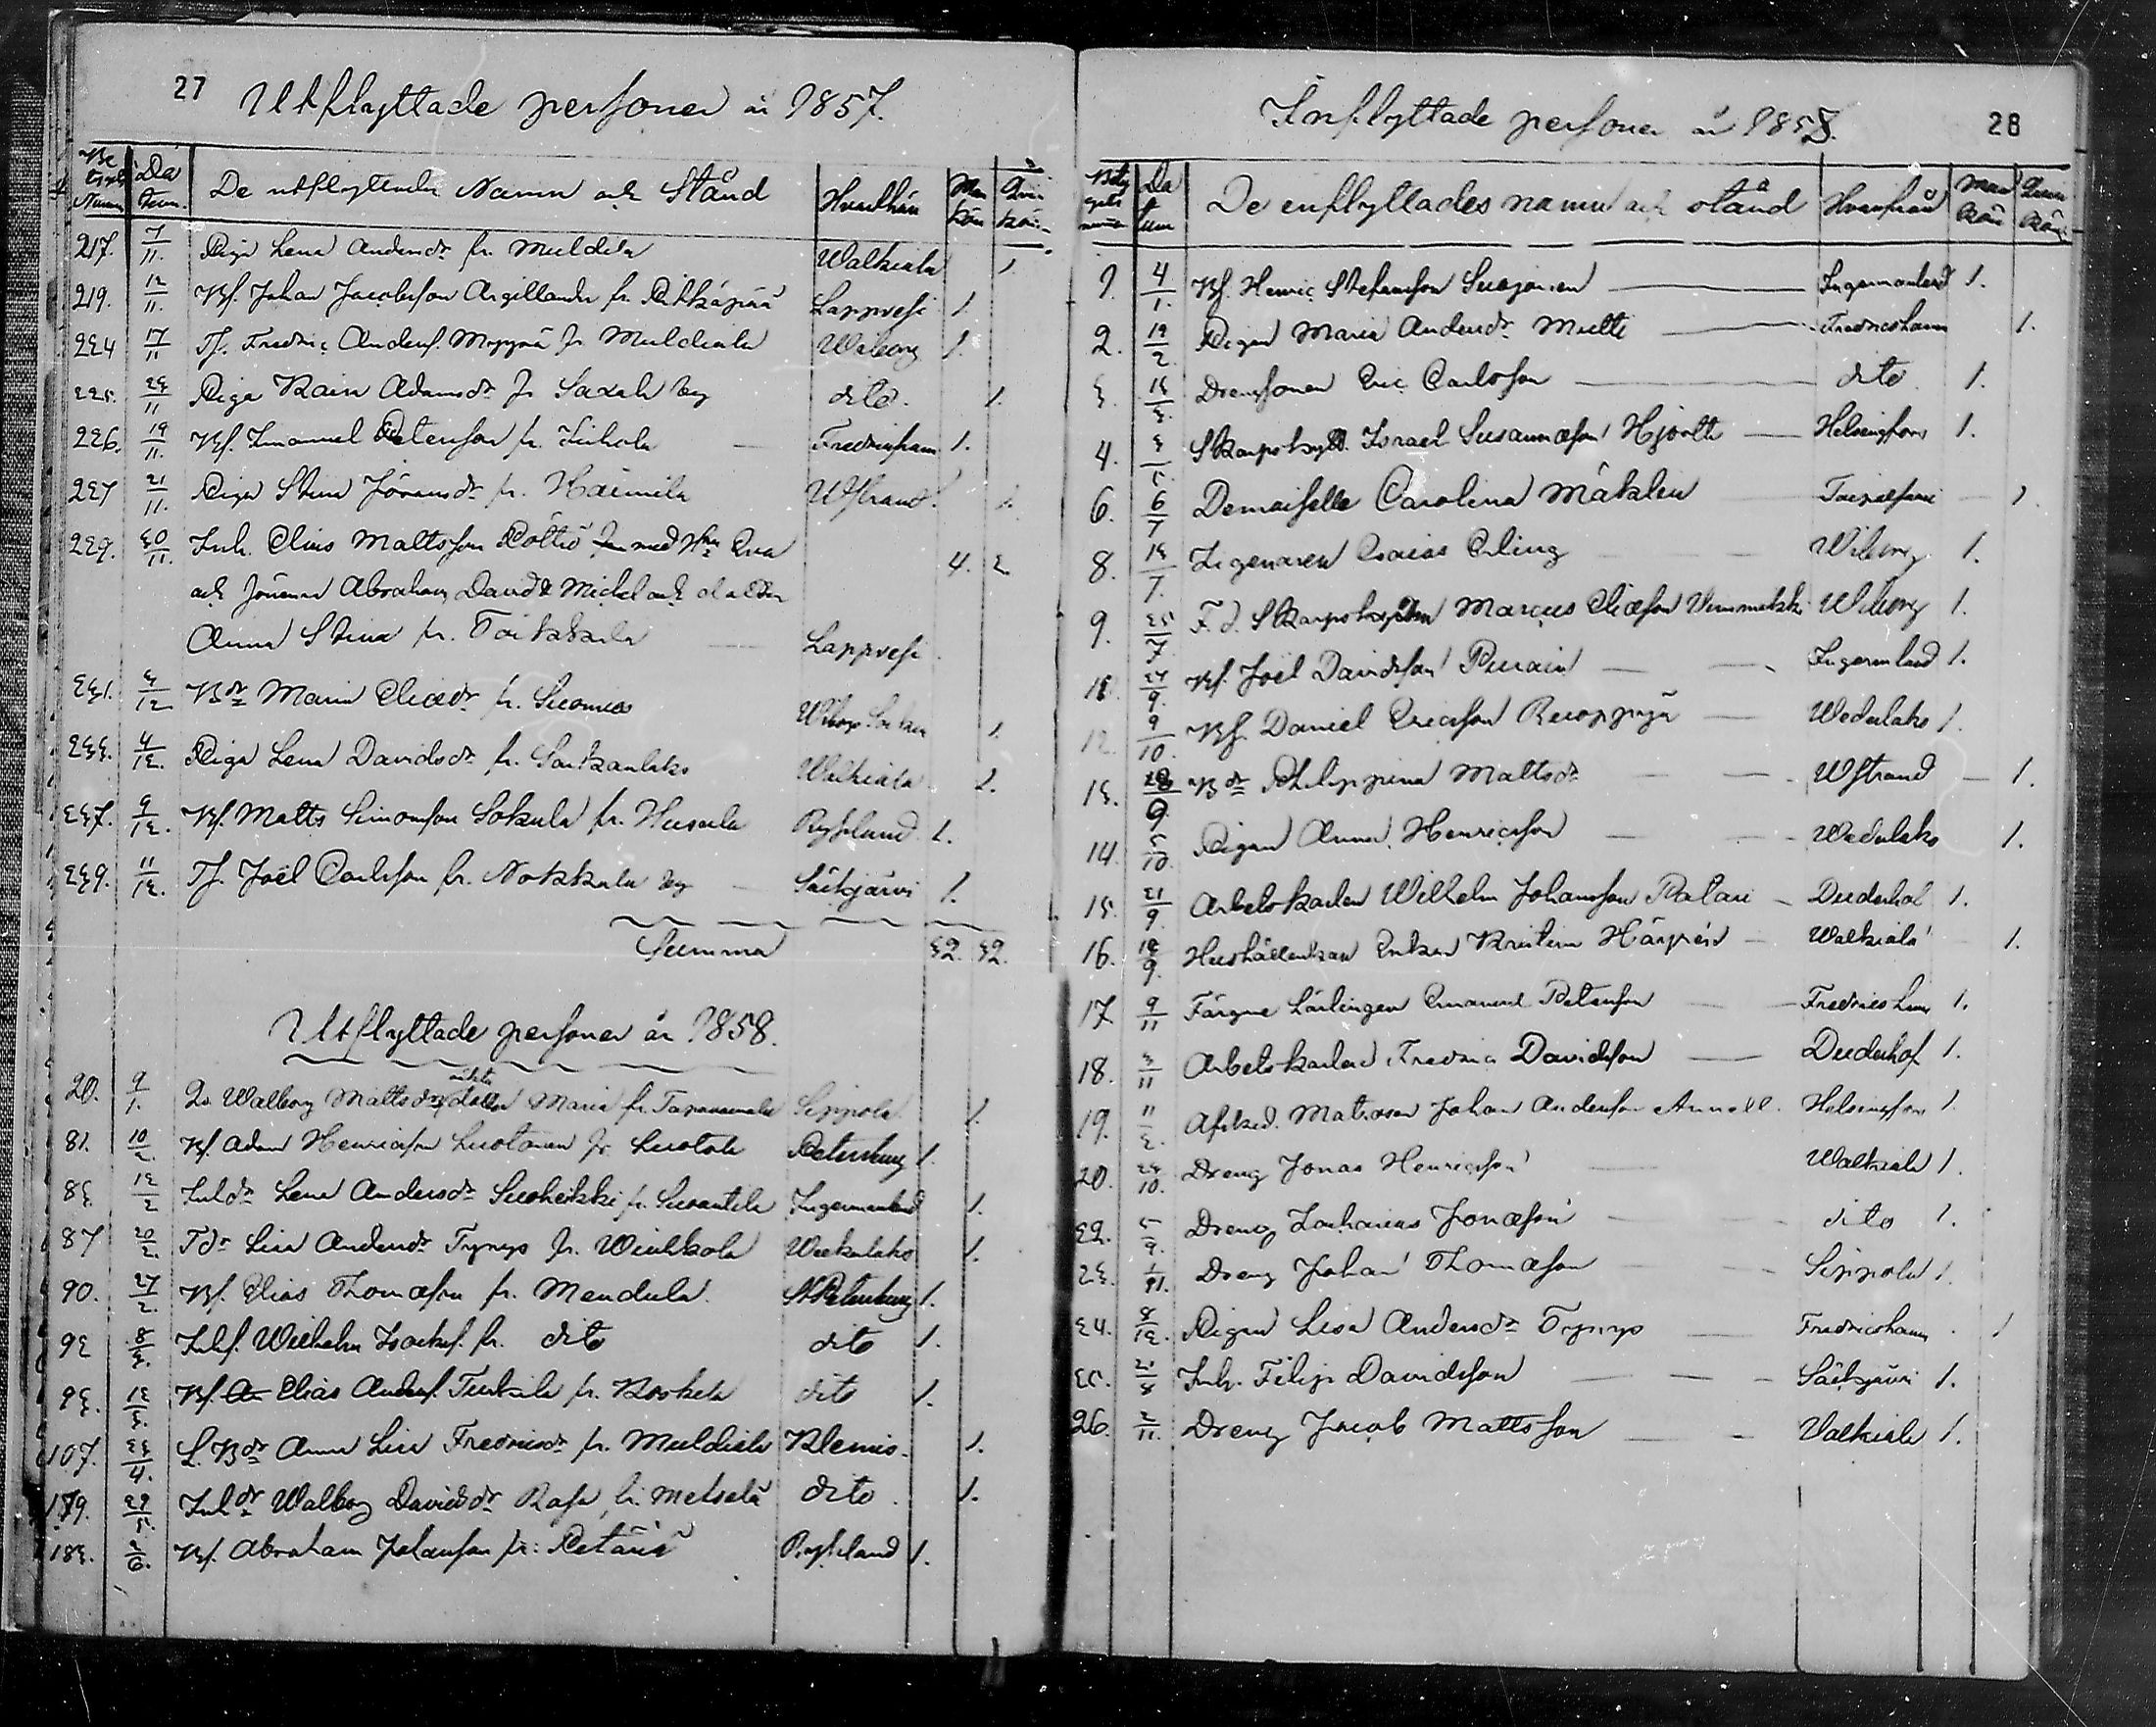 27
Utflyttade personer år 1857.
Be tygets Numro Da tum. De utflyttades Namn och Stånd Hvarthän Man kön Qvin kön
217. 7/11. Piga Lena Andersdr fr. Muldila Walkiala 1
219. 12/11. Bf. Johan Jacobsson Argillander fr. Pitkäpää Lappvesi 1
224 17/11 Tf. Fredric Andersf. Myyrä fr. Muldiala Wiborg 1.
225. 23/11 Piga Kaisa Adamsdr fr Saxala by dito. 1.
226. 19/11. Bf. Imanuel Peterson fr. Fredricsham 1.
227 21/11. Piga Stina Göransdr fr. Haimila Wstrand. 1.
229. 30/11. Inh. Elias Mattsson Pöltiö med Hru Eva 4. 2
och Sönerna Abraham, David & Michel och dottren
Anna Stina fr. Toikkala Lappvesi
231. 3/12 Bdr Maria Eliædr fr. Suomies Wiborgs Socken 1.
233. 4/12. Piga Lena Davidsdr fr. Sarkanlaks Walkiala 1.
237. 9/12. Bf. Matts Simonson Sokula fr. Husula Ryssland 1.
239. 11/12. Tf. Joël Carlsson fr. Nokkala by Säkjärvi 1.
Summa 32. 32.
Utflyttade personer år 1858.
20. 9/1. Qv. Walborg Mattsdr dotter Maria fr. Sippola 1.
81. 10/2. Bf. Adam Henricsson Luotonen fr. Luotola Petersburg 1.
83. 12/2 Inhdr Lena Andersdr Suoheikki fr. Suvantila Ingermanland 1.
87 20/2. Tdr Lisa Andersdr Tyrys fr. Wiuhkola Weckelaks 1.
90. 27/2. Bf. Elias Thomæson fr. Mendula. St Petersburg 1.
92 8/3. Inhf. Wilhelm Isaksf. fr. dito dito 1.
93. 12/3. Bf. Elias Andersf. Turkila fr. Korkela dito 1.
107. 23/4. S. Bdr Anna Lisa Fredricsdr fr. Muldiala Klemis. 1.
179. 29/5. Inhdr Walborg Davidsdr Rasa fr. Metselä dito. 1.
183. 2/6. Bf. Abraham Johansson fr. Petäiä Ryssland 1.
28
Inflyttade personer år 1858.
Bety gets numro Da tum De inflyttades namn och stånd Hvarifrån Man kön Qvin kön
1. 4/1. Bf. Henric Stefansson Suojanen Ingermanland 1.
2. 19/2. Pigan Maria Andersdr Multi Fredricsham 1.
3. 15/3. Drengsonen Eric Carlsson dito 1.
4. 3/5. Skarpskytt. Israel Susannæson Hjorth Helsingfors 1.
6. 6/7 Demoiselle Carolina Mäklin Taipalsaari 1.
8. 13/7. Zigenaren Esaias Erling Wiborg 1.
9. 25/7 F.d. Skarpskytten Marcus Eliæson Wiborg 1.
11. 27/9. Bf. Joël Davidsson Purain Ingermland 1.
12. 9/10. Bf. Daniel Ericsson Ruoppuja Wederlaks 1.
13. 28/9. Bdr Philippina Mattsdr Wstrand 1.
14. 5/10. Pigan Anna Henricsson Wederlaks 1.
15. 21/9. Arbetskarlen Wilhelm Johansson Ratari Duderhof 1.
16. 12/9. Hushållerskan Enkan Kristina Walkiala 1.
17 9/11 Färgare Lärlingen Emanuel Peterson Fredricsham 1.
18. 3/11 Arbetskarlen Fredric Davidsson Duderhof 1.
19. 11/2. Afsked. Matrosen Johan Anderson Helsingfors 1.
20. 23/10. Dreng Jonas Henricsson Walkiala 1.
22. 5/9. Dreng Zacharias Jonæson dito 1.
23. 1/11. Dreng Johan Thomæson Sippola 1.
24. 8/12. Pigan Lisa Andersdr Tyrys Fredricsham 1
25. 21/8 Inh. Filip Davidsson Säkjärvi 1.
26. 2/11. Dreng Jacob Mattsson Valkiala 1.